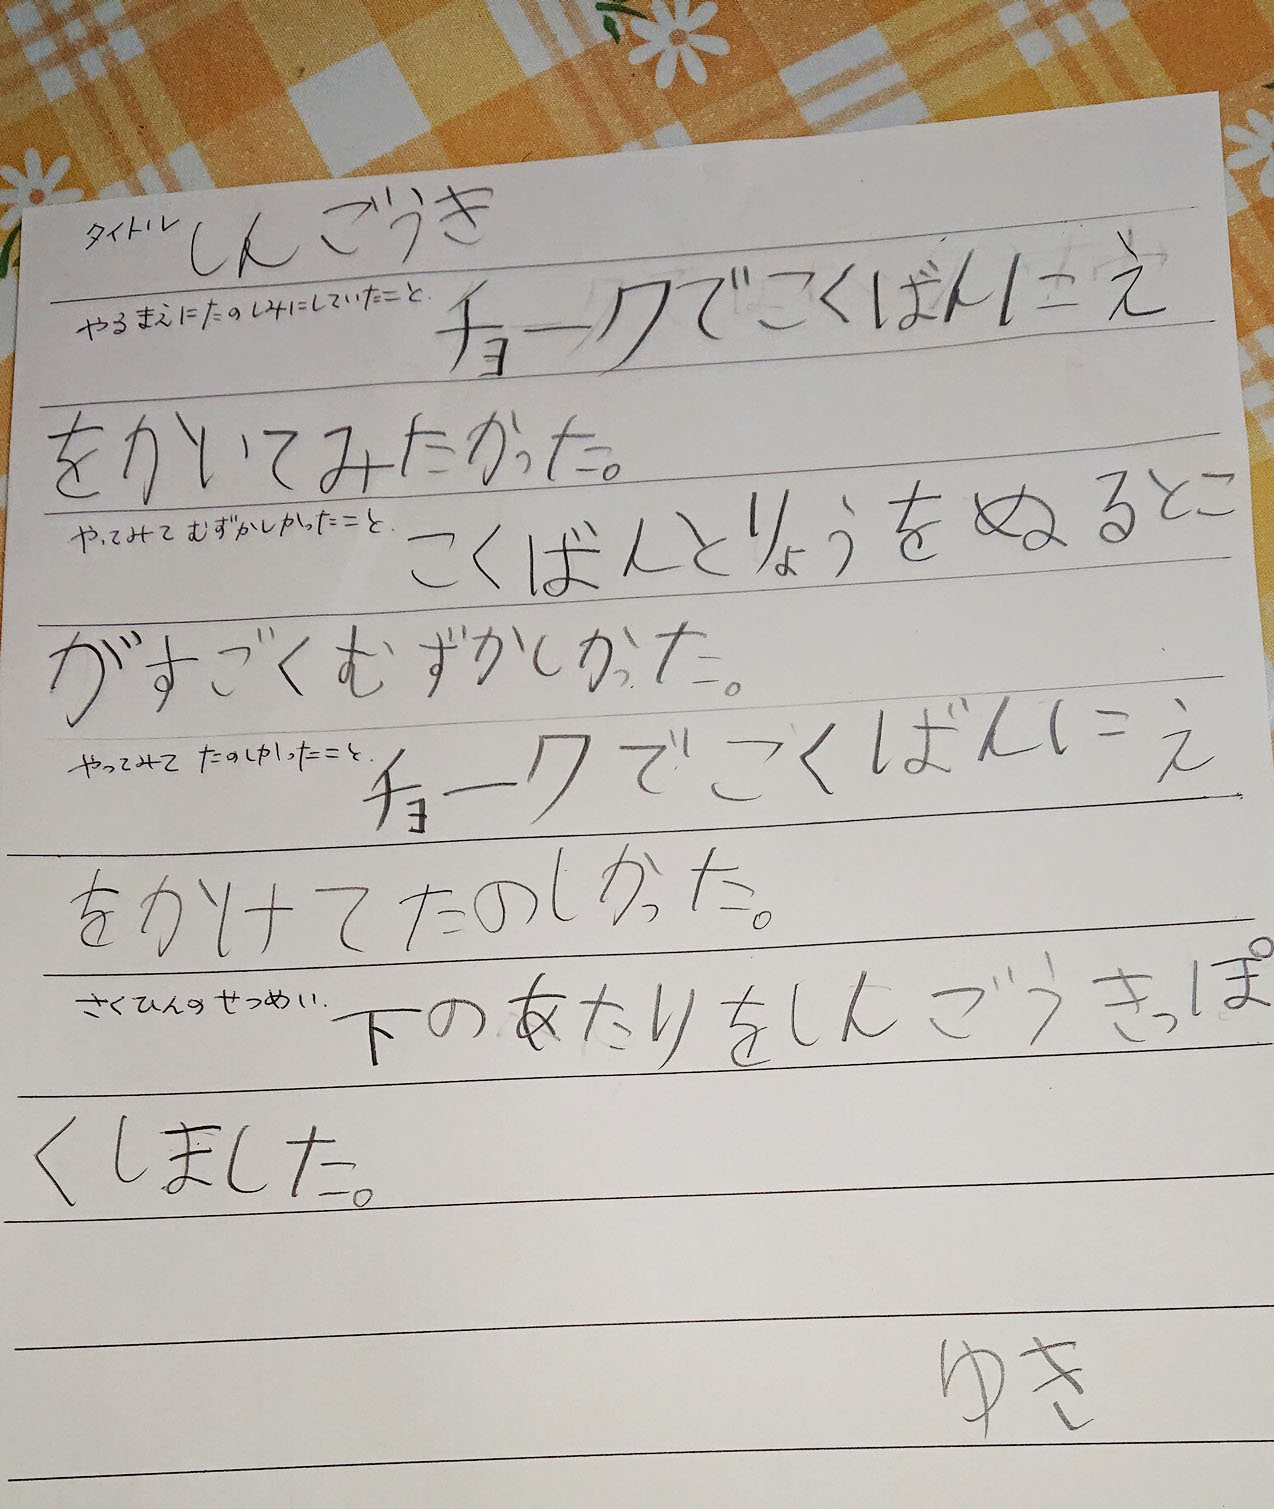 タイトル しんごうき
やるまえにたのしみにしていたこと. チョークでこくばんにえ
をかいてみたかった。
やってみて むずかしかったこと. こくばんとりょうをぬるとこ
がすごくむずかしかった。
やってみて たのしかったこと. チョークでこくばんにえ
をかけてたのしかった。
さくひんの せつめい. 下のあたりをしんごうきっぽ
くしました。
ゆき